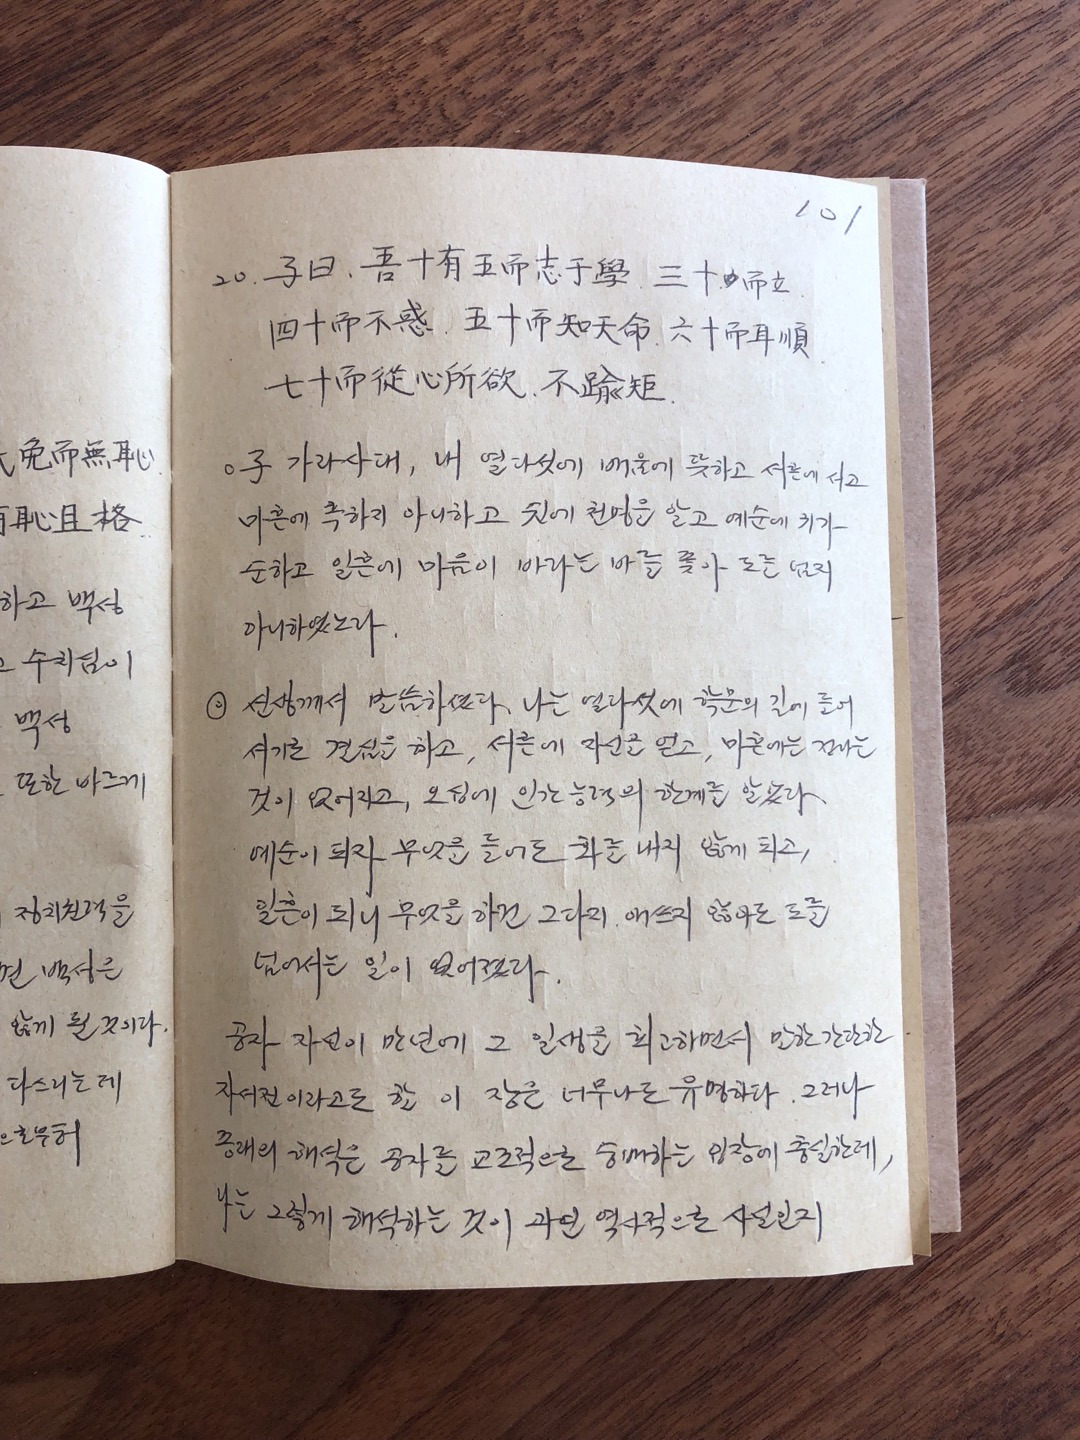 民免而無恥
有恥且格
하고 백성
수치심이
백성
또한 바르게
정치권력을
백성은
않게 될 것이다.
다스리는데
으로부터
101
20. 子曰. 吾十有五而志于學. 三十而立.
四十而不惑. 五十而知天命. 六十而耳順
七十而從心所欲. 不踰矩.
○子 가라사대, 내 열다섯에 배움에 뜻하고 서른에 서고
마흔에 혹하지 아니하고 쉰에 천명을 알고 예순에 귀가
순하고 일흔에 마음이 바라는 바를 쫓아 도를 넘지
아니하였노라.
선생께서 말씀하셨다. 나는 열다섯에 학문의 길에 들어
서기로 결심을 하고, 서른에 자신을 얻고, 마흔에는 겁나는
것이 없어지고, 오십에 인간능력의 한계를 알았다.
예순이 되자 무엇을 들어도 화를 내지 않게 되고,
일흔이 되니 무엇을 하건 그다지 애쓰지 않아도 도를
넘어서는 일이 없어졌다.
공자 자신이 만년에 그 일생을 회고하면서 말한 간단한
자서전이라고도 할 이 장은 너무나도 유명하다. 그러나
종래의 해석은 공자를 교조적으로 숭배하는 입장에 충실한데,
나는 그렇게 해석하는 것이 과연 역사적으로 사실인지